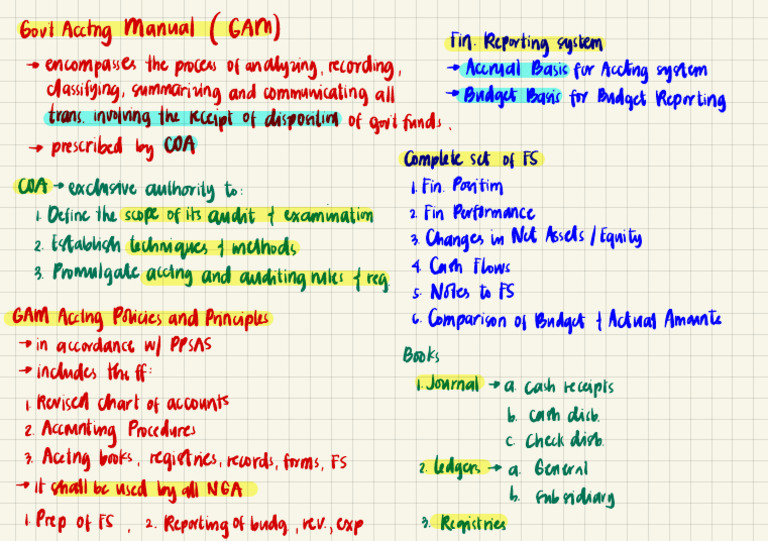 Gov't Acctng Manual (GAM)
→ encompasses the process of analyzing, recording,
classifying, summarizing and communicating all
trans. involving the receipt of disposition of gov't funds.
→ prescribed by COA
COA → exclusive authority to:
1. Define the scope of its audit & examination
2. Establish techniques & methods
3. Promulgate acctng and auditing rules & reg.
GAM Acctng Policies and Principles
→ in accordance w/ PPSAS
→ includes the ff:
1. Revised chart of accounts
2. Accounting Procedures
3. Acctng books, registries, records, forms, FS
→ it shall be used by all NGA
1. Prep of FS, 2. Reporting of budg, rev., exp
Fin. Reporting system
→ Accrual Basis for Acctng system
→ Budget Basis for Budget Reporting
Complete set of FS
1. Fin. Position
2. Fin Performance
3. Changes in Net Assets / Equity
4. Cash Flows
5. Notes to FS
6. Comparison of Budget & Actual Amounts
Books
1. Journal → a. Cash receipts
b. Cash disb.
c. Check disb.
2. Ledgers → a. General
b. Subsidiary
3. Registries